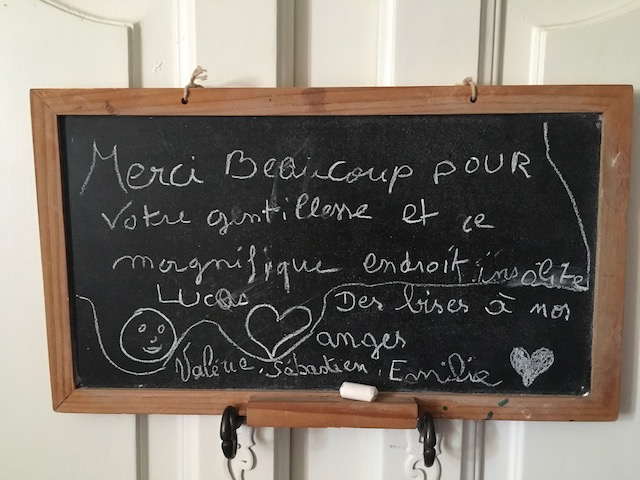 Merci Beaucoup pour
votre gentillesse et ce
magnifique endroit insolite
Lucas
Des bises à nos
anges
Valérie, Sébastien, Emilie